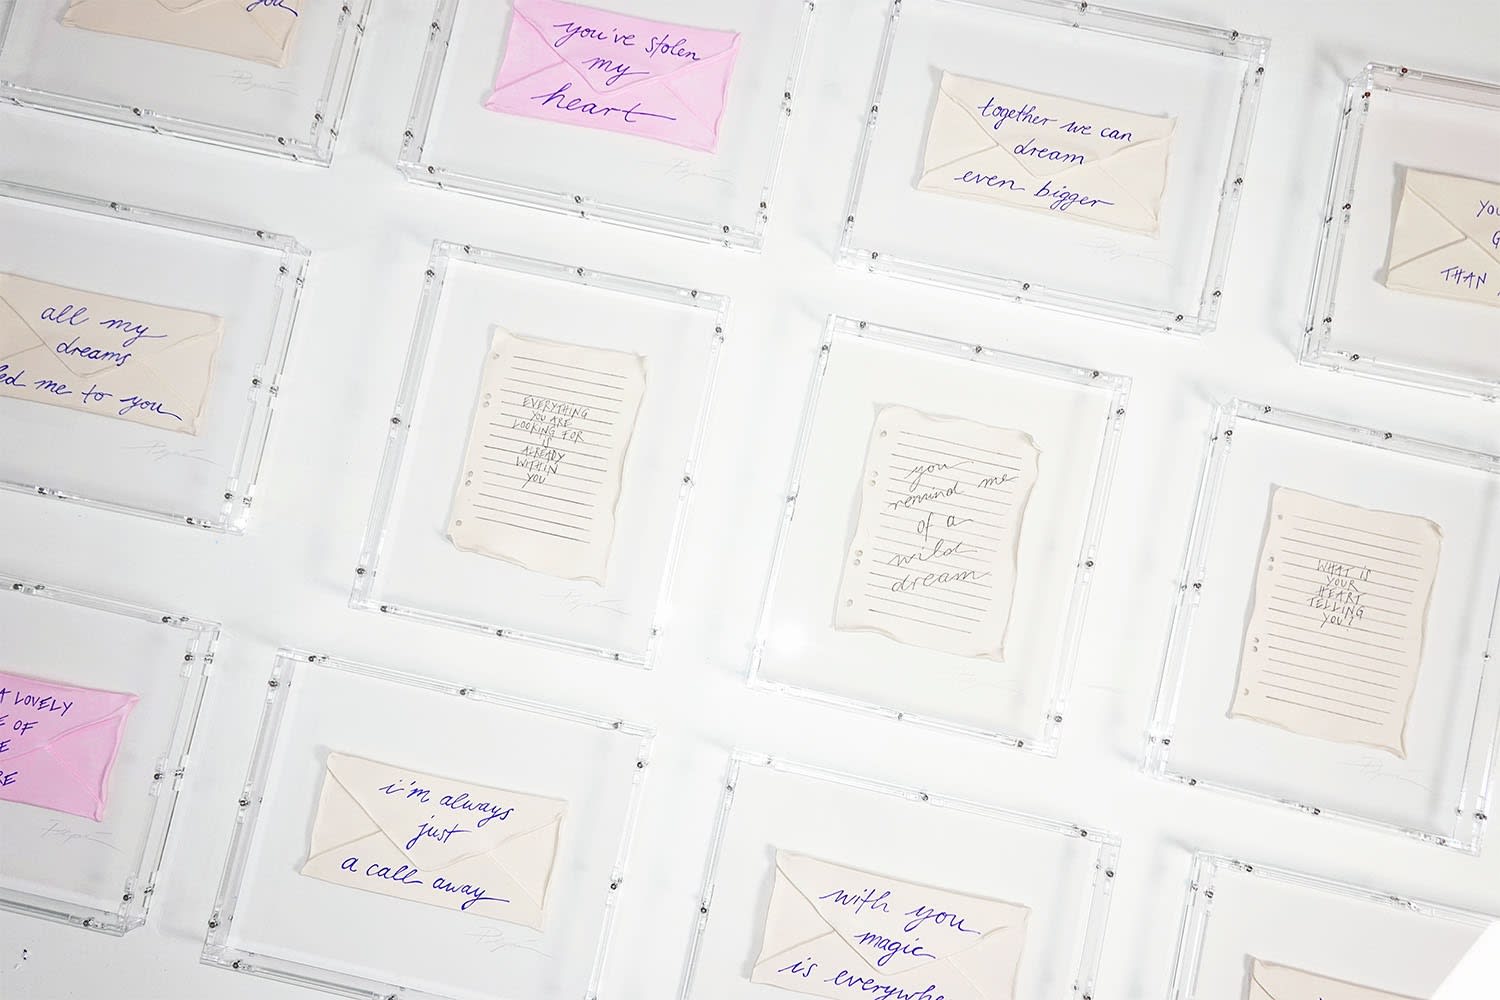 you
you've stolen
my
heart
together we can
dream
even bigger
THAN
all my
dreams
me to you
EVERYTHING
YOU ARE
LOOKING FOR
IS
ALREADY
WITHIN
YOU
you
remind me
of a
wild
dream
WHAT IS
YOUR
HEART
TELLING
YOU?
A LOVELY
OF
i'm always
just
a call away
with you
magic
is everywhe